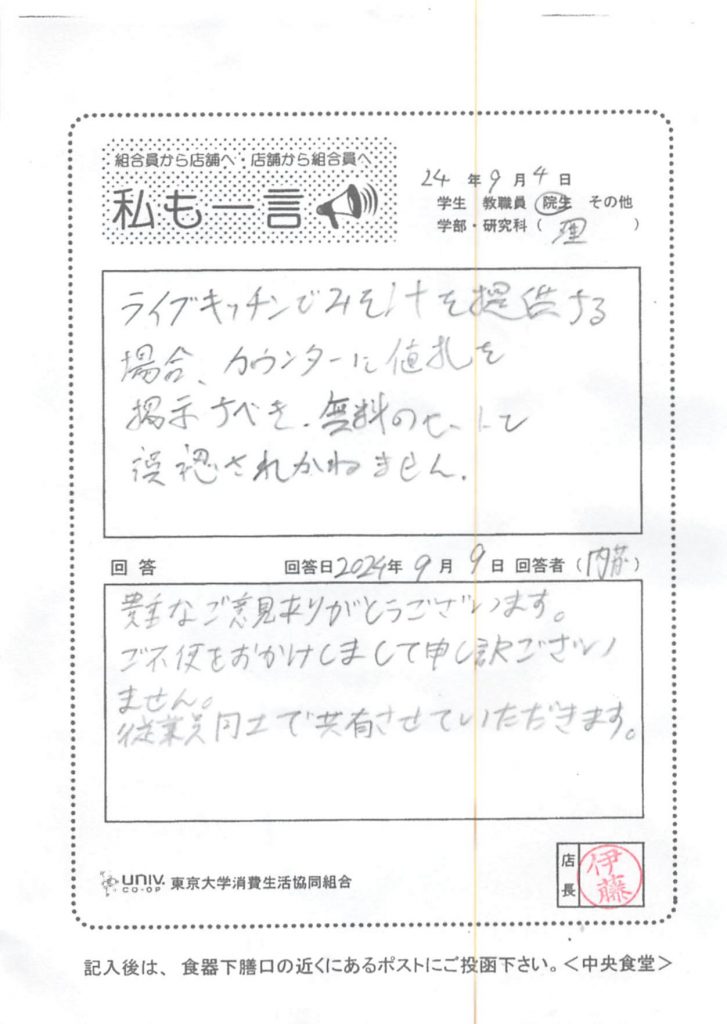 組合員から店舗へ・店舗から組合員へ
私も一言
24年9月4日
学生 教職員 院生 その他
学部・研究科（理）
ライブキッチンでみそ汁を提供する
場合、カウンターに値札を
掲示すべき。無料のセルフと
誤認されかねません。
回答 回答日2024年9月9日 回答者（内藤）
貴重なご意見ありがとうございます。
ご不便をおかけしまして申し訳ござい
ません。
従業員同士で共有させていただきます。
UNIV. CO-OP 東京大学消費生活協同組合
店長 伊藤
記入後は、食器下膳口の近くにあるポストにご投函下さい。＜中央食堂＞